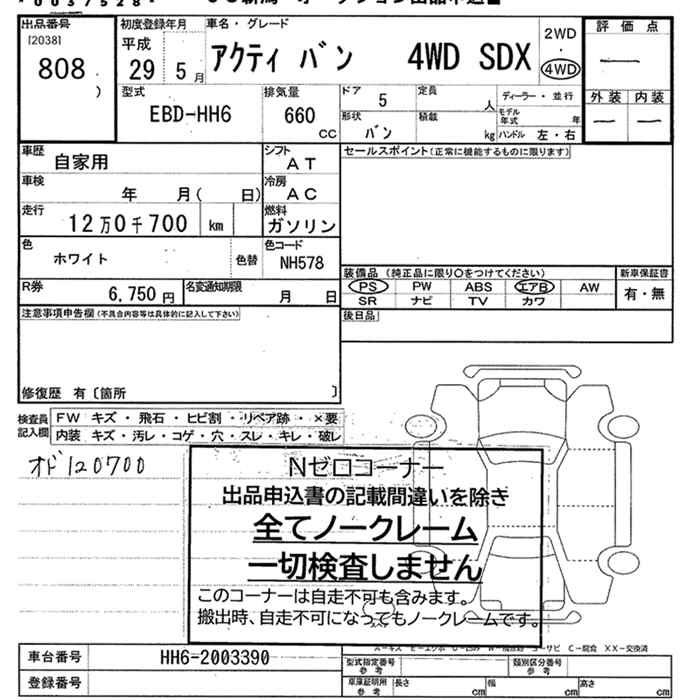 * 0 0 3 7 5 2 8 *
出品番号
[2038]
808
)
初度登録年月
平成
29 5 月
車名・グレード
アクティ バン 4WD SDX
2WD
・
4WD
評 価 点
—
外 装 内 装
— —
型式
EBD-HH6
排気量
660
CC
ドア 5
定員 人
ディーラー・並行
形状
バン
積載 kg
モデル年式 年
ハンドル 左・右
車歴
自家用
シフト
AT
セールスポイント(正常に機能するものに限ります)
車検
年 月( 日)
冷房
AC
走行
12万0千700 km
燃料
ガソリン
色
ホワイト
色替
色コード
NH578
装備品(純正品に限り○をつけてください)
新車保証書
PS PW ABS エアB AW
SR ナビ TV カワ
有・無
R券
6,750 円
名変通知期限
月 日
後日品
注意事項申告欄(不具合内容等は具体的に記入して下さい)
修復歴 有〔箇所 〕
検査員
記入欄
FW キズ・飛石・ヒビ割・リペア跡・×要
内装 キズ・汚レ・コゲ・穴・スレ・キレ・破レ
オド120700
Nゼロコーナー
出品申込書の記載間違いを除き
全てノークレーム
一切検査しません
このコーナーは自走不可も含みます。
搬出時、自走不可になってもノークレームです。
C-腐食 XX-交換済
車台番号
HH6-2003390
登録番号
型式指定番号
参 考
類別区分番号
参 考
車庫証明用
参 考
長さ cm
幅 cm
高さ cm